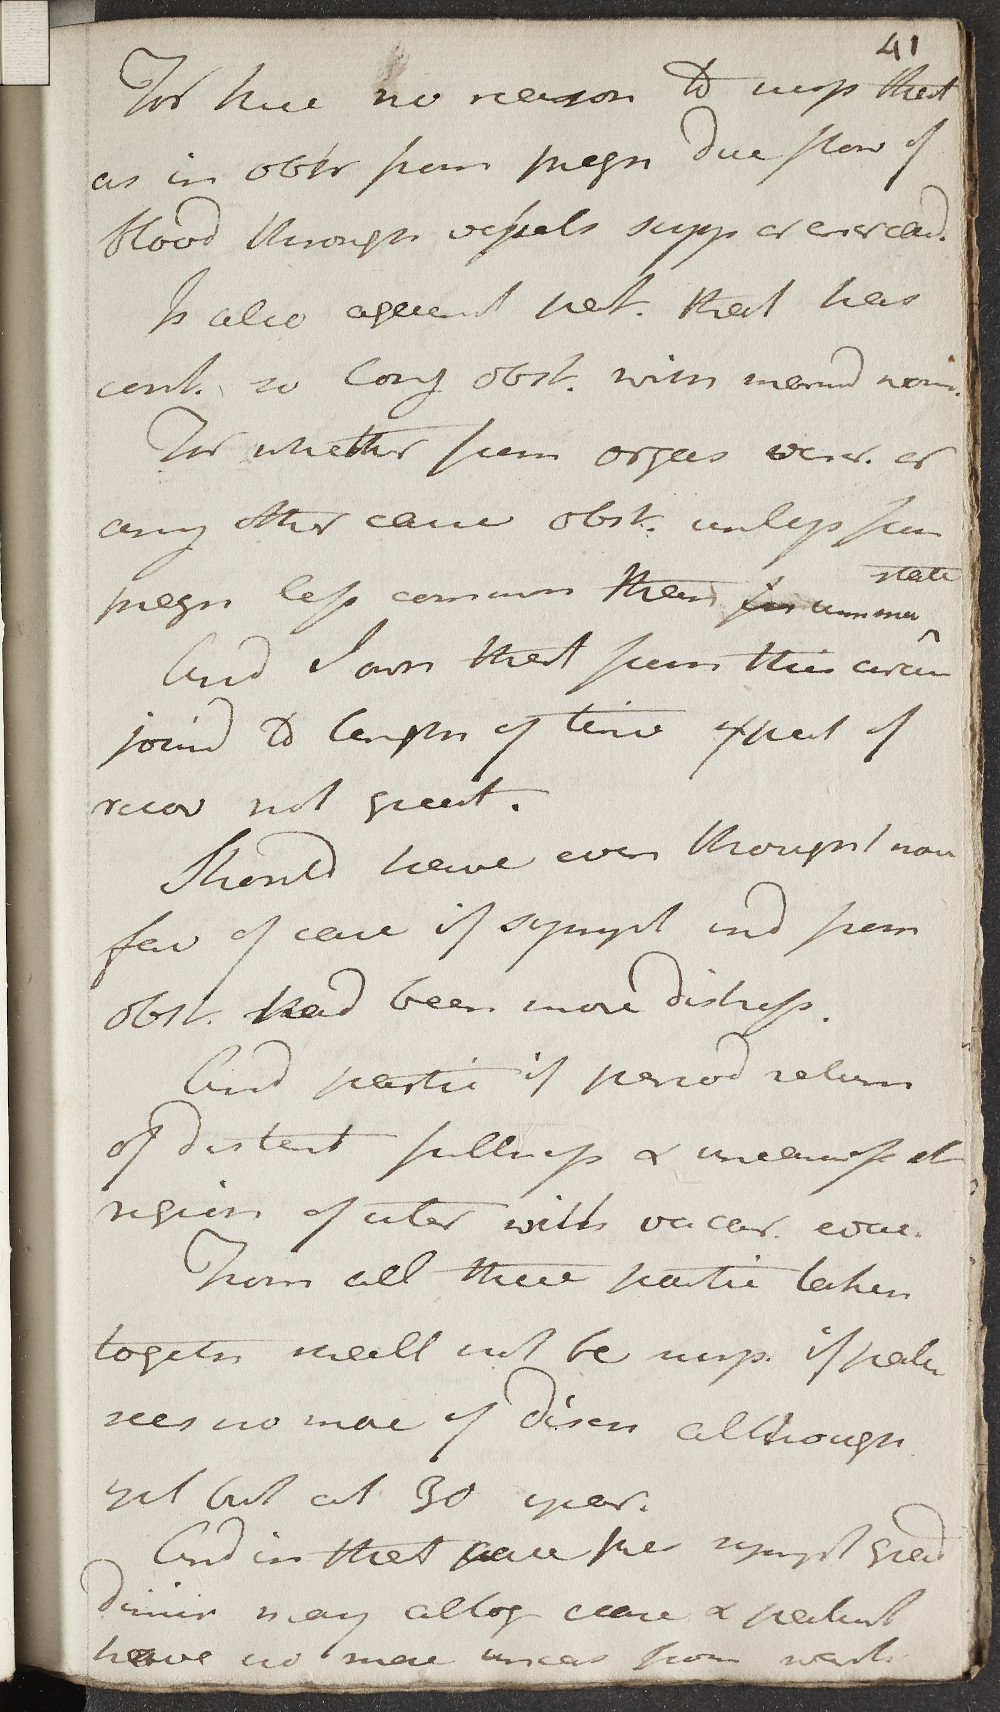 41
For here no reason to susp that
as in obstr from pregn due flow of
blood through vessels supp or
Is also against pat. that has
cont. so long obst. with marri womn.
For whether from organ or
any other cause obst. unless from
pregn less common than in unmar state
And I own that from this circum
join'd to length of time expect of
recov not great.
Should have even thought more
fav of case if sympt ind from
obst. had been more distress.
And partic if period return
of distent fullness & uneasiness at
region of uter with vacar. evac.
From all these partic taken
togeth shall not be surp. if patie
sees no more of disch although
yet but at 30 year.
And in that case the sympt grad
dimin may altog cease & patient
have no more uneas from want